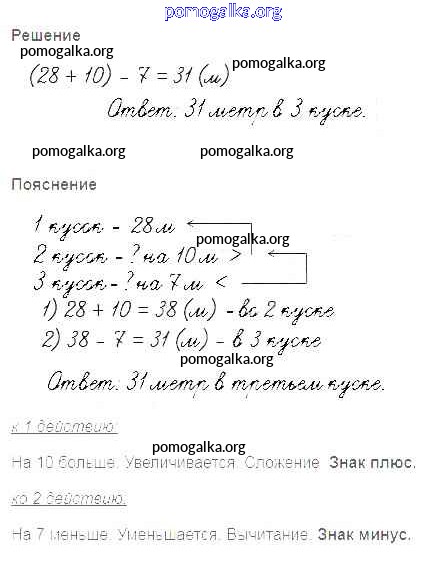 pomogalka.org
Решение
pomogalka.org
pomogalka.org
(28 + 10) - 7 = 31 (м)
Ответ: 31 метр в 3 куске.
pomogalka.org pomogalka.org
Пояснение
1 кусок - 28 м
pomogalka.org
2 кусок - ? на 10 м >
3 кусок - ? на 7 м <
1) 28 + 10 = 38 (м) - во 2 куске
2) 38 - 7 = 31 (м) - в 3 куске
pomogalka.org
Ответ: 31 метр в третьем куске.
к 1 действию:
pomogalka.org
На 10 больше. Увеличивается. Сложение. Знак плюс.
ко 2 действию:
На 7 меньше. Уменьшается. Вычитание. Знак минус.